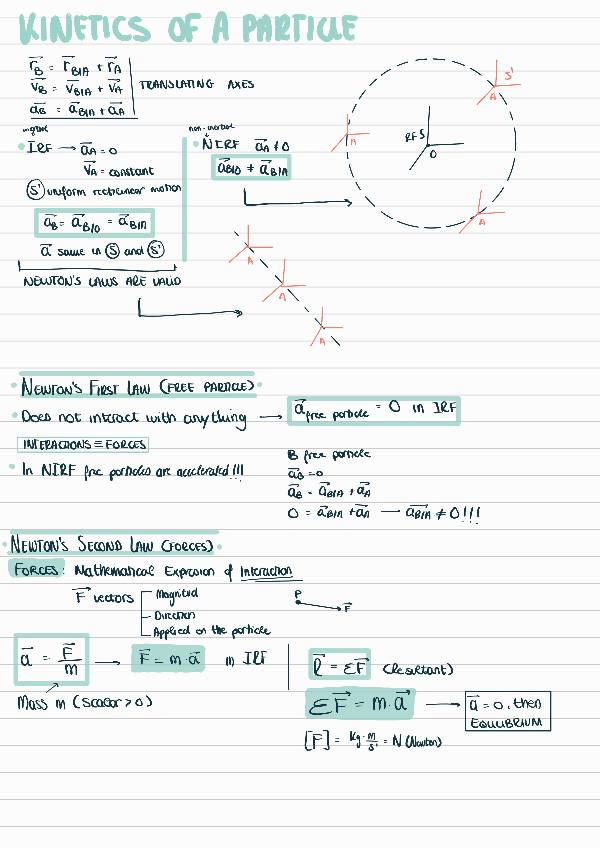 KINETICS OF A PARTICLE
r⃗_B = r⃗_B/A + r⃗_A
v⃗_B = v⃗_B/A + v⃗_A
a⃗_B = a⃗_B/A + a⃗_A
TRANSLATING AXES
inertial
IRF → a⃗_A = 0
v⃗_A = constant
S' uniform rectilinear motion
a⃗_B = a⃗_B/O = a⃗_B/A
a⃗ same in S and S'
NEWTON'S LAWS ARE VALID
non-inertial
NIRF a⃗_A ≠ 0
a⃗_B/O ≠ a⃗_B/A
S'
A
A
RF S
O
A
A
A
A
NEWTON'S FIRST LAW (FREE PARTICLE)
Does not interact with anything → a⃗_free particle = 0 in IRF
INTERACTIONS ≡ FORCES
In NIRF free particles are accelerated!!!
B free particle
a⃗_B = 0
a⃗_B = a⃗_B/A + a⃗_A
0 = a⃗_B/A + a⃗_A → a⃗_B/A ≠ 0!!!
NEWTON'S SECOND LAW (FORCES)
FORCES: Mathematical Expression of Interaction
F⃗ vectors
Magnitud
Direction
Applied on the particle
P
F⃗
a⃗ = F⃗/m → F⃗ = m·a⃗ in IRF
Mass m (scalar > 0)
R⃗ = ΣF⃗ (Resultant)
ΣF⃗ = m·a⃗ → a⃗ = 0, then
EQUILIBRIUM
[F] = kg·m/s² = N (Newton)